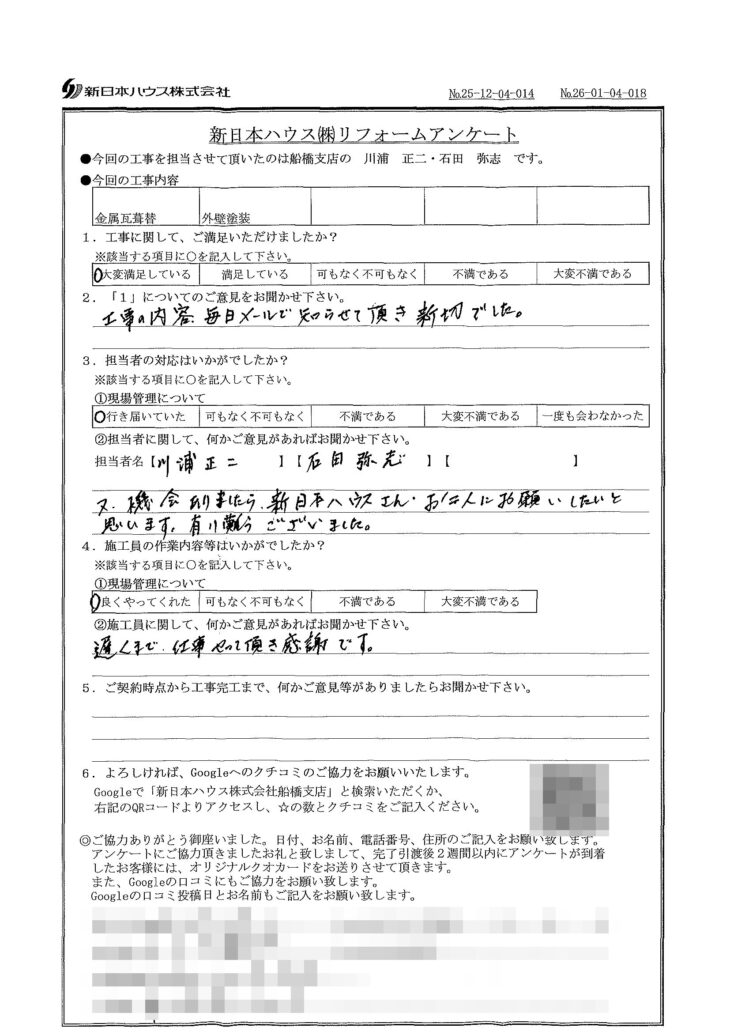 新日本ハウス株式会社
№25-12-04-014 №26-01-04-018
新日本ハウス㈱リフォームアンケート
●今回の工事を担当させて頂いたのは船橋支店の 川浦 正二・石田 弥志 です。
●今回の工事内容
金属瓦葺替 外壁塗装
1．工事に関して、ご満足いただけましたか？
※該当する項目に○を記入して下さい。
○大変満足している 満足している 可もなく不可もなく 不満である 大変不満である
2．「1」についてのご意見をお聞かせ下さい。
工事の内容、毎日メールで知らせて頂き新切でした。
3．担当者の対応はいかがでしたか？
※該当する項目に○を記入して下さい。
①現場管理について
○行き届いていた 可もなく不可もなく 不満である 大変不満である 一度も会わなかった
②担当者に関して、何かご意見があればお聞かせ下さい。
担当者名【川浦正二 】【石田弥志 】【 】
又、機会ありましたら、新日本ハウスさん・お二人にお願いしたいと
思います。有り難うございました。
4．施工員の作業内容等はいかがでしたか？
※該当する項目に○を記入して下さい。
①現場管理について
○良くやってくれた 可もなく不可もなく 不満である 大変不満である
②施工員に関して、何かご意見があればお聞かせ下さい。
遅くまで、仕事やって頂き感謝です。
5．ご契約時点から工事完工まで、何かご意見等がありましたらお聞かせ下さい。
6．よろしければ、Googleへのクチコミのご協力をお願いいたします。
Googleで「新日本ハウス株式会社船橋支店」と検索いただくか、
右記のQRコードよりアクセスし、☆の数とクチコミをご記入ください。
◎ご協力ありがとう御座いました。日付、お名前、電話番号、住所のご記入をお願い致します。
アンケートにご協力頂きましたお礼と致しまして、完了引渡後２週間以内にアンケートが到着
したお客様には、オリジナルクオカードをお送りさせて頂きます。
また、Googleの口コミにもご協力をお願い致します。
Googleの口コミ投稿日とお名前もご記入をお願い致します。